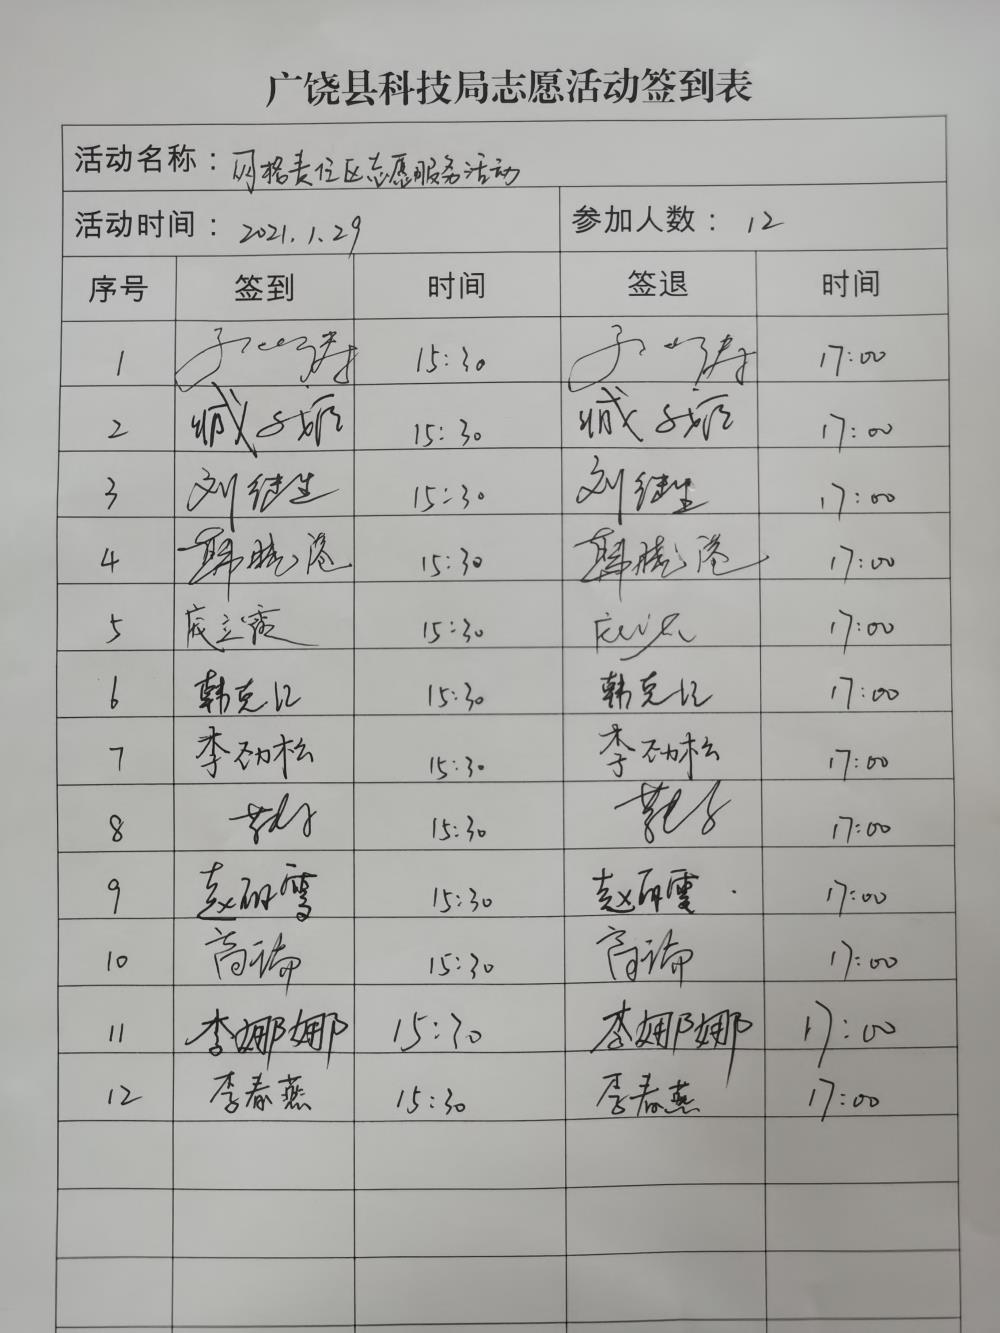 广饶县科技局志愿活动签到表
活动名称：网格责任区志愿服务活动
活动时间：2021.1.29 参加人数：12
序号 签到 时间 签退 时间
1 15:30 17:00
2 15:30 17:00
3 刘继生 15:30 刘继生 17:00
4 韩晓港 15:30 韩晓港 17:00
5 15:30 17:00
6 韩克江 15:30 韩克江 17:00
7 李劲松 15:30 李劲松 17:00
8 15:30 17:00
9 赵研雪 15:30 赵研雪 17:00
10 高瑜 15:30 高瑜 17:00
11 李娜娜 15:30 李娜娜 17:00
12 李春燕 15:30 李春燕 17:00